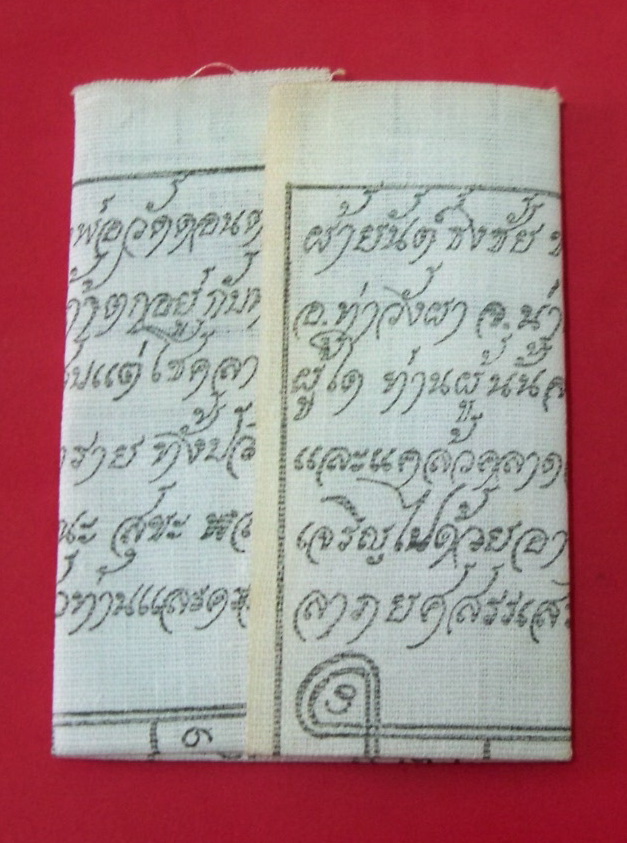 ผ้ายันต์ ธงชัย
พ่อวัดดอนต
อ.ท่าวังผา จ.น่า
ผู้ใด ท่านผู้นั้น
บแต่โชคลา
และแคล้วคลาด
ราย ทั้งปว
เจริญไปด้วยอา
นะ สุขะ พล
ลาภยศสรรเส
ท่านและคร